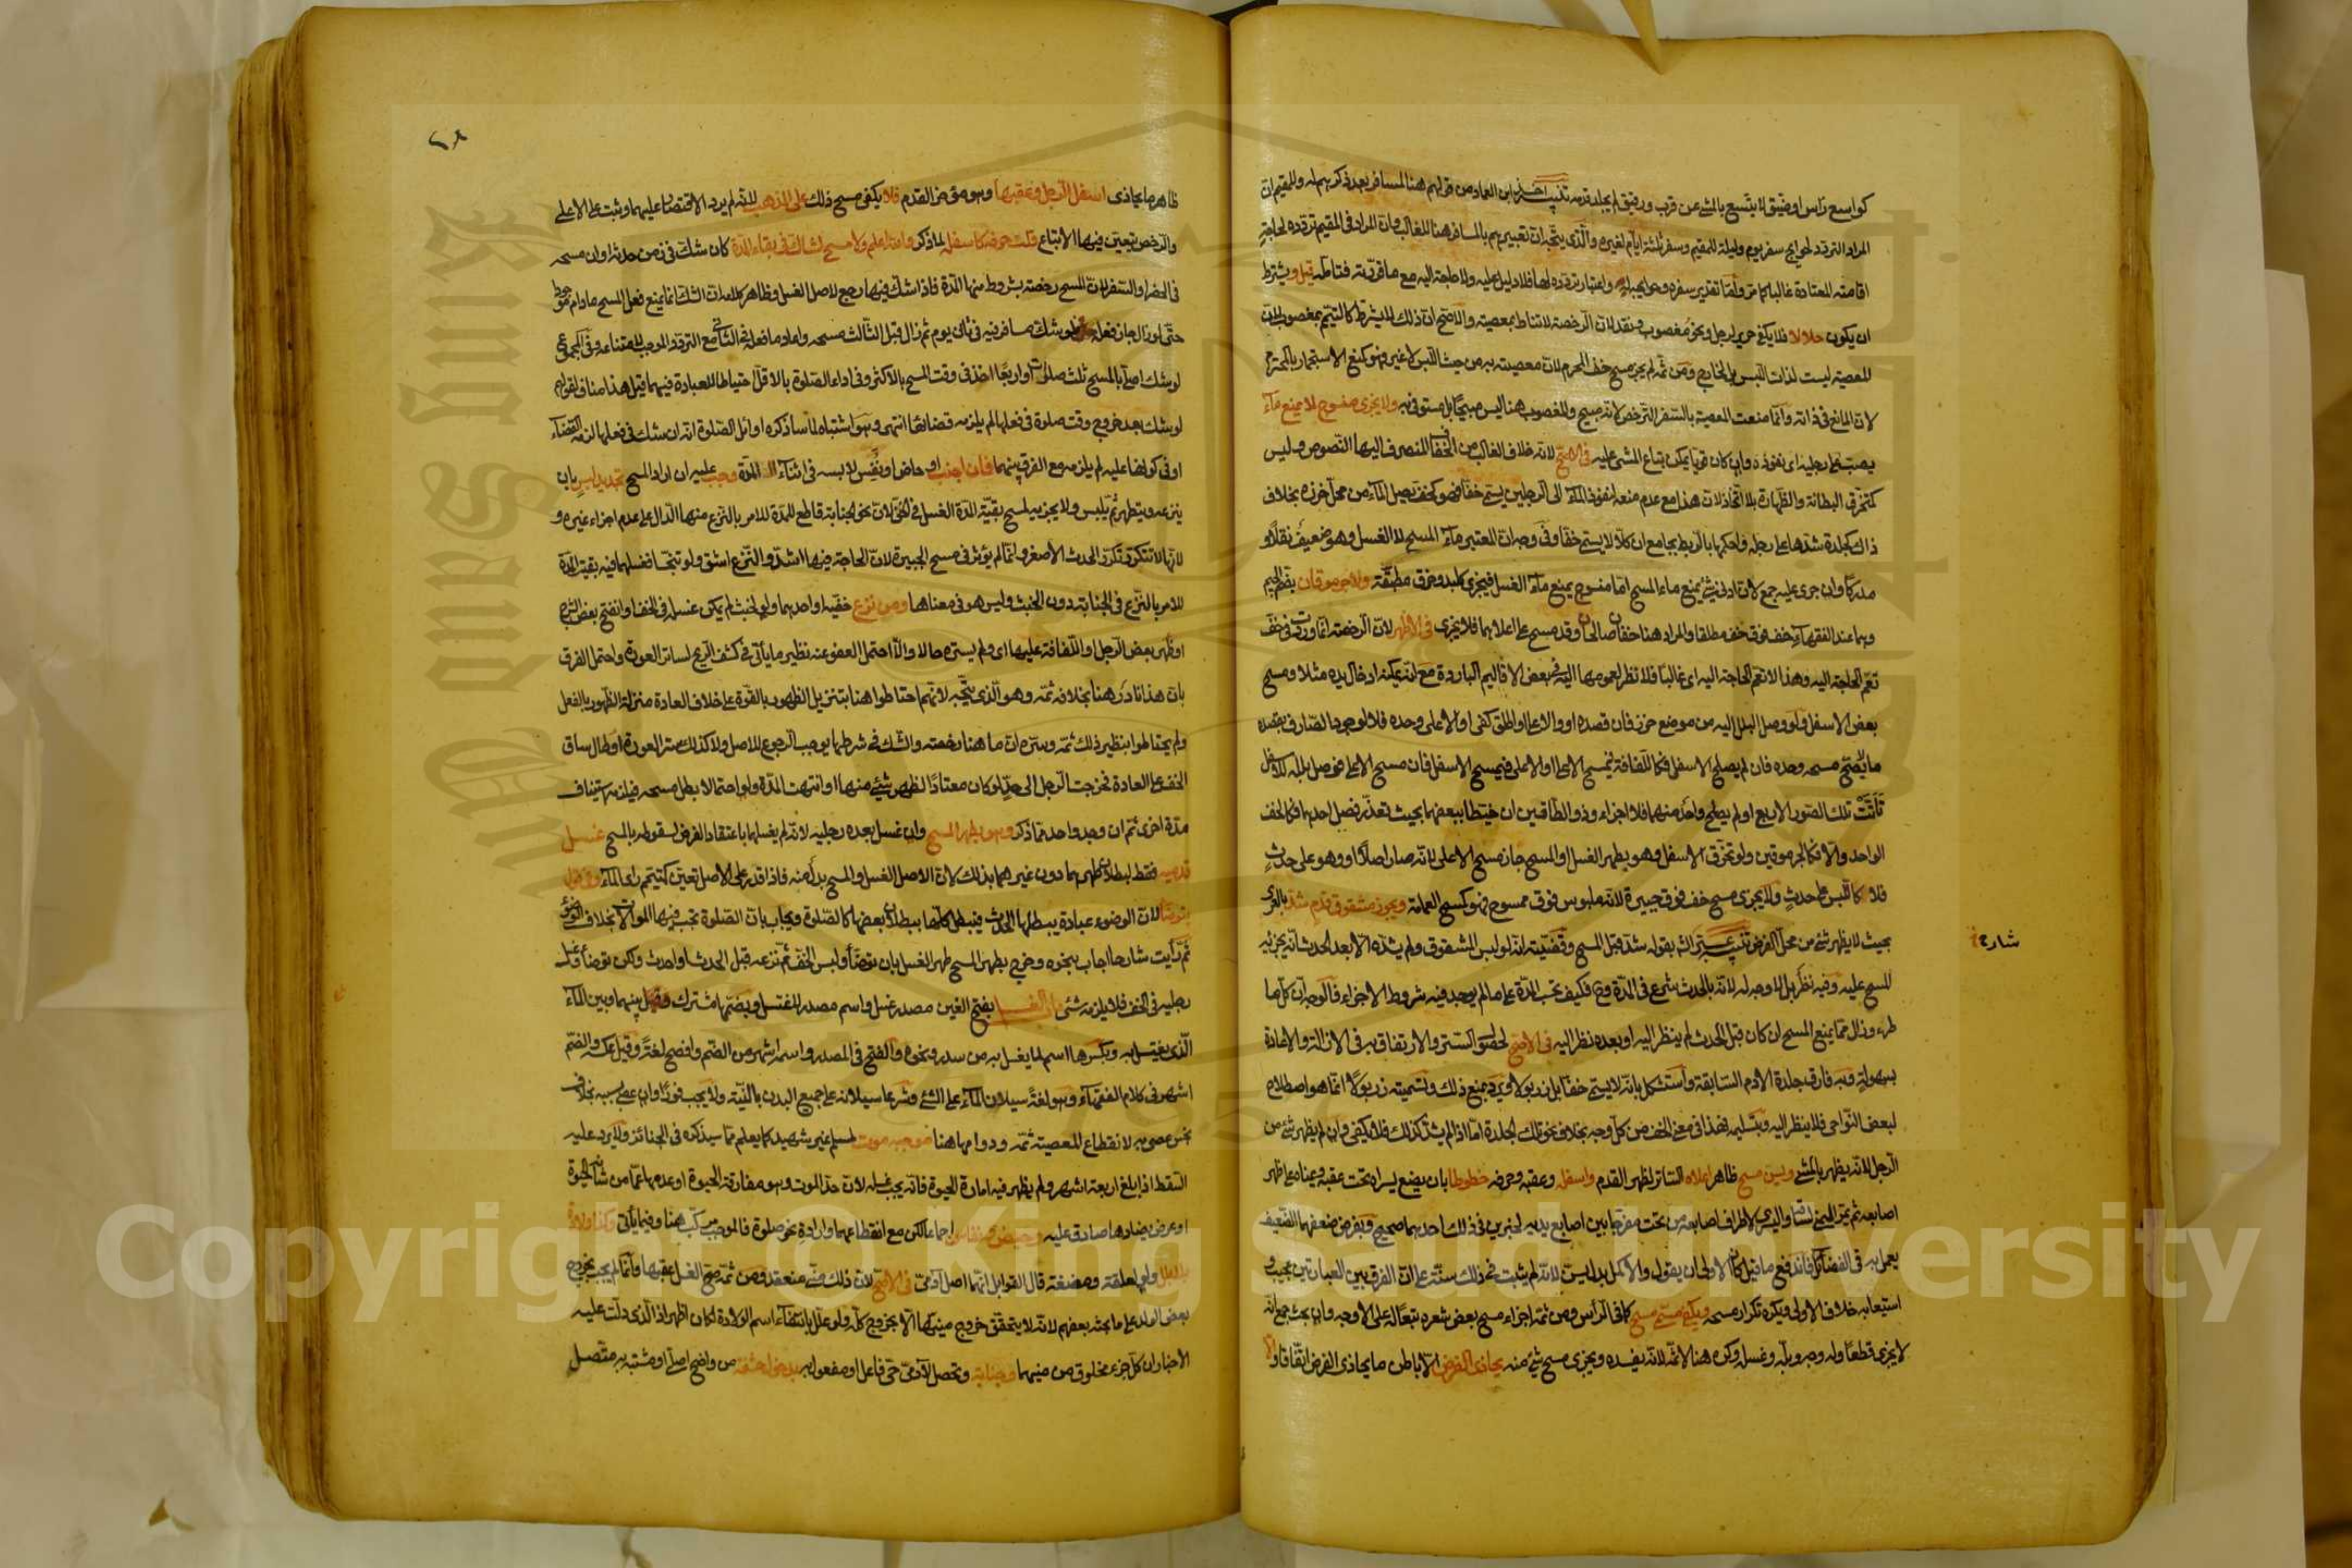 كواسع رأس او ضيق لا يتسع بالمشي عن قرب ورقيق لم يجلد قدمه تنبيه اخذ ابن العماد من قولهم هنا لمسافر بعد ذكرهم له وللمقيم ان
المراد التردد لحوايج سفر يوم وليلة للمقيم وسفر ثلثة ايام لغيره والذي يتجه ان تعبيرهم بالمسافر هنا للغالب وان المراد في المقيم تردده لحاجة
اقامته المعتادة غالبا كما مر واما تقدير سفره وحوايجه له واعتبار تردده لها فلا دليل عليه ولا حاجة اليه مع ما قررته فتامله قيل ويشترط
ان يكون حلالا فلا يكفي حرير لرجل ونحو مغصوب ونقد لان الرخصة لا تناط بمعصية والاصح ان ذلك لا يشترط كالتيمم بمغصوب لان
المعصية ليست لذات اللبس بل لخارج ومن ثم لم يجز مسح خف المحرم لان معصيته به من حيث اللبس لا غير فهو كمنع الاستجمار بالمحترم
لان المانع في ذاته وانما منعت المعصية بالسفر الترخص لانه مبيح والمغصوب هنا ليس مبيحا بل مستوفى به ولا يجزئ منسوج لا يمنع ماء
يصب على رجليه اى نفوذه وان كان قويا يمكن تباع المشي عليه في الاصح لانه خلاف الغالب من الخفاف المنصرف اليها النصوص وليس
كتخرق البطانة والظهارة بلا تحاذ لان هذا مع عدم منعه لنفوذ الماء الى الرجلين يسمى خفا فهو كخف يصل الماء من محل خرزه بخلاف
ذاك كجلدة شدها على رجله واحكمها بالربط بجامع ان كلا لا يسمى خفا وفي وجه ان المعتبر ماء المسح لا الغسل وهو ضعيف نقلا و
مدركا وان جرى عليه جمع لان ادنى شئ يمنع ماء المسح اما منسوج يمنع ماء الغسل فيجزى كلبد وخرق مطبقة ولا جرموقان بضم الجيم
وهما عند الفقهاء خف فوق خف مطلقا والمراد هنا خفان صالحان وقد مسح على اعلاهما فلا يجزى في الاظهر لان الرخصة انما وردت في خف
تعم الحاجة اليه وهذا لا تعم الحاجة اليه اى غالبا فلا نظر لعمومها اليه في بعض الاقاليم الباردة مع انه يمكنه ادخال يده مثلا ومسح
بعض الاسفل ولو وصل البلل اليه من موضع خرز فان قصده او والاعلى او اطلق كفى او الاعلى وحده فلا لوجود الصارف بقصده
ما لا يصح مسحه وحده فان لم يصلح الاسفل فكاللفافة فيمسح الاعلى او الاعلى فيمسح الاسفل فان مسح الاعلى فوصل بلله للاسفل
تأتت تلك الصور الاربع او لم يصلح واحد منهما فلا اجزاء وذو الطاقين ان خيطا ببعضهما بحيث تعذر فصل احدهما فكالخف
الواحد والا فكالجرموقين ولو تخرق الاسفل وهو بطهر الغسل او المسح جاز مسح الاعلى لانه صار اصلا او وهو على حدث
فلا كاللبس على حدث ولا يجزى مسح خف فوق جبيرة لانه ملبوس فوق ممسوح فهو كمسح العمامة ويجوز مشقوق قدم شد بالعرى
بحيث لا يظهر شئ من محل الفرض تنبيه عبر اثر بقوله شد قبل المسح وقضيته انه لو لبس المشقوق ولم يشده الا بعد الحدث انه يجزئه
المسح عليه وفيه نظر بل لا وجه له لانه بالحدث شرع في المدة وح فكيف تحسب المدة على ما لم يوجد فيه شروط الاجزاء فالوجه ان كل ما
طرء وزال مما يمنع المسح ان كان قبل الحدث لم ينظر اليه او بعده نظر اليه في الاصح لحصول الستر والارتفاق به في الازالة والاعادة
بسهولة وبه فارق جلدة الادم السابقة واستشكل بانه لا يسمى خفا بل زربولا ويرد بمنع ذلك وتسميته زربولا انما هو اصطلاح
لبعض النواحي فلا ينظر اليه وبتسليمه فهذا في معنى الخف من كل وجه بخلاف نحو تلك الجلدة اما اذا لم يشد كذلك فلا يكفي وان لم يظهر شئ من
الرجل لانه يظهر بالمشي ويسن مسح ظاهر اعلاه الساتر لظهر القدم واسفله وعقبه وحرفه خطوطا بان يضع يسراه تحت عقبه ويمناه على ظهر
اصابعه ثم يمر اليمنى لساقه واليسرى لاطراف اصابعه من تحت مفرجا بين اصابع يديه لخبرين في ذلك احدهما صحيح وبفرض ضعفهما الضعيف
يعمل به في الفضائل فاندفع ما قيل كان الاولى ان يقول والاكمل بدل يسن لانه لم يثبت في ذلك سنة على ان الفرق بين العبارتين عجيب و
استيعابه خلاف الاولى ويكره تكرار مسحه ويكفي مسمى مسح كما في الرأس ومن ثمة اجزاء مسح بعض شعره تبعا له على الاوجه وان بحث جمع انه
لا يجزى قطعا وله وجه وبله وغسله وكره هنا لا ثمة لانه يفسده ويجزى مسح شئ منه يحاذى الفرض الا باطن ما يحاذى الفرض اتفاقا ولا
شارح
٢٨
ظاهر ما يحاذى اسفل الرجل وعقبها وهو مؤخر القدم فلا يكفى مسح ذلك على المذهب لانه لم يرد الاقتصار عليهما وثبت على الاعلى
والرخص يتعين فيها الاتباع قلت حرفه كاسفله لما ذكر والله اعلم ولا مسح لشاك في بقاء المدة كان شك في زمن حدثه او ان مسحه
في الحضر او السفر لان المسح رخصة بشروط منها المدة فاذا شك فيها رجع لاصل الغسل وظاهر كلامه ان الشك انما يمنع فعل المسح مادام موجودا
حتى لو زال جاز فعله فلو شك مسافر فيه في ثانى يوم ثم زال قبل الثالث مسحه واعاد ما فعله في الثانى مع التردد الموجب لامتناعه وفي المجموع
لو شك اصلى بالمسح ثلث صلوات او اربعا اخذ في وقت المسح بالاكثر وفي اداء الصلوة بالاقل احتياطا للعبادة فيهما قيل هذا مناف لقولهم
لو شك بعد خروج وقت صلوة في فعلها لم يلزمه قضائها انتهى وهو اشتباه لما سأذكره اوائل الصلوة انه ان شك في فعلها لزمه القضاء
او في كونها عليه لم يلزمه مع الفرق بينهما فان اجنب او حاض او نفس لابسه في اثناء المدة وجب عليه ان اراد المسح تجديد لبس بان
ينزعه ويتطهر ثم يلبس ولا يجزيه لمسح بقية المدة الغسل في الخف لان نحو الجنابة قاطع للمدة للامر بالنزع منها الدال على عدم اجزاء غيره و
لانها لا تتكرر تكرر الحدث الاصغر وانما لم يؤثر في مسح الجبيرة لان الحاجة فيها اشد والنزع اشق ولو تنجسا فغسلهما فيه بقيت المدة
للامر بالنزع في الجنابة دون الخبث وليس هو في معناها ومن نزع خفيه او احدهما ولو لخبث لم يمكن غسله في الخف او انفتح بعض الشرج
او ظهر بعض الرجل او اللفافة عليها اى ولم يستره حالا والا احتمل العفو عنه نظير ما يأتي في كشف الريح لساتر العورة واحتمل الفرق
بان هذا نادر هنا بخلافه ثمه وهو الذي يتجه لانهم احتاطوا هنا بتنزيل الظهور بالقوة على خلاف العادة منزلة الظهور بالفعل
ولم يحتاطوا بنظير ذلك ثمه وسره ان ما هنا رخصة والشك في شرطها يوجب الرجوع للاصل ولا كذلك ستر العورة او طال ساق
الخف على العادة فخرجت الرجل الى حد لو كان معتادا لظهر شئ منها او انتهت المدة ولو احتمالا بطل مسحه فيلزمه استيناف
مدة اخرى ثم ان وجد واحد مما ذكر وهو بطهر المسح وان غسل بعده رجليه لانه لم يغسلهما باعتقاد الفرض لسقوطه بالمسح غسل
قدميه فقط لبطلان طهرهما دون غيرهما بذلك لان الاصل الغسل والمسح بدل منه فاذا قدر على الاصل تعين كمتيمم راى الماء وفي قول
يتوضأ لان الوضوء عبادة يبطلها الحدث فيبطل كلها ببطلان بعضها كالصلوة ويجاب بان الصلوة تجب فيها الموالات بخلاف الوضوء
ثم رأيت شارحا اجاب بنحوه وخرج بطهر المسح طهر الغسل بان توضأ ولبس الخف ثم نزعه قبل الحدث او احدث ولكن توضأ وغسل
رجليه في الخف فلا يلزمه شئ باب الغسل بفتح الغين مصدر غسل واسم مصدر لاغتسل وبضمها مشترك بينهما وبين الماء
الذي يغتسل به وبكسرها اسم لما يغسل به من سدر ونحوه والفتح في المصدر واسمه اشهر من الضم وافصح لغة وقيل عكسه والضم
اشهر في كلام الفقهاء وهو لغة سيلان الماء على الشئ وشرعا سيلانه على جميع البدن بالنية ولا يجب فورا وان عصى بسببه بخلاف
نجس عصى به لانقطاع المعصية ثمه ودوامها هنا موجبه موت لمسلم غير شهيد كما يعلم مما سيذكره في الجنائز ولا يرد عليه
السقط اذا بلغ اربعة اشهر ولم يظهر فيه امارة الحيوة فانه يجب غسله لان حد الموت وهو مفارقة الحيوة او عدمها عما من شأنه الحيوة
او عرض يضادها صادق عليه وحيض ونفاس اجماعا لكن مع انقطاعهما وارادة نحو صلوة فالموجب مركب هنا وفيما يأتى وكذا ولادة
بلا بلل ولو لعلقة ومضغة قال القوابل انهما اصل آدمي في الاصح لان ذلك مني منعقد ومن ثمة صح الغسل عقبها وانما لم يجب بخروج
بعض الولد على ما بحثه بعضهم لانه لا يتحقق خروج منيها الا بخروج كله ولو علل بانتفاء اسم الولادة لكان اظهر اذ الذي دلت عليه
الاخبار ان كل جزء مخلوق من منيهما وجنابة وتحصل لآدمي حي فاعل او مفعول به بدخول حشفة من واضح اصلى او مشتبه به متصل